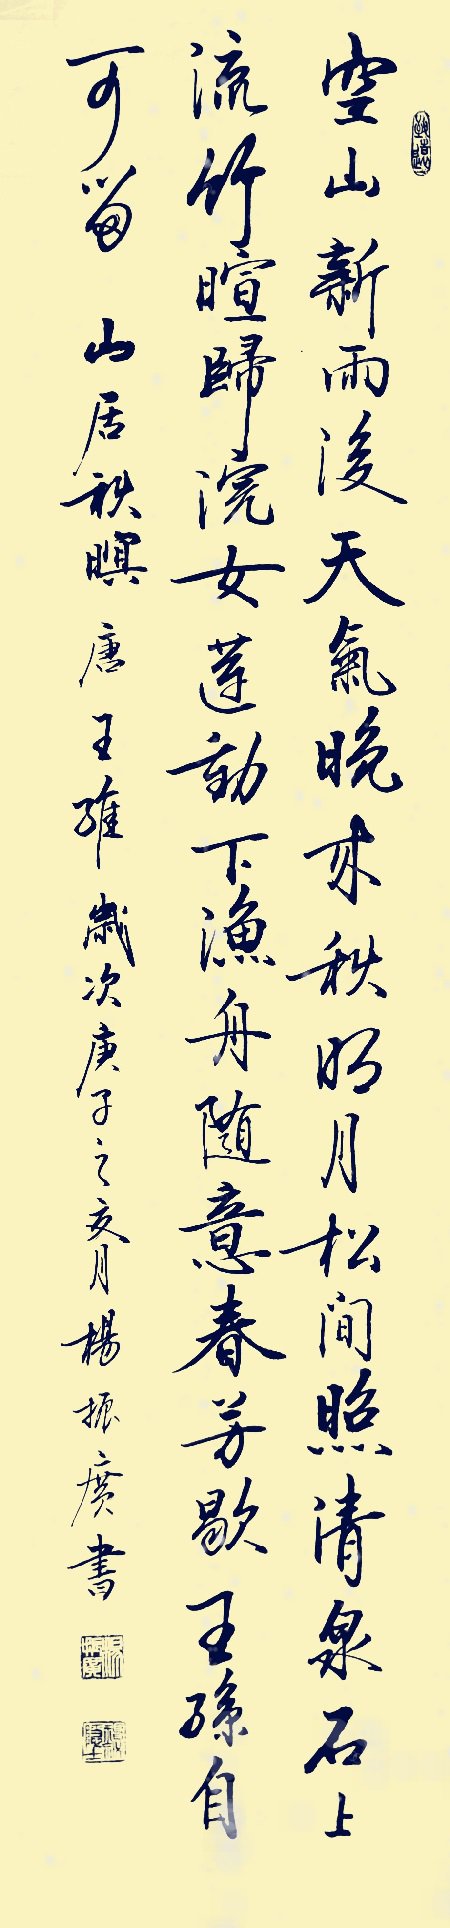 空山新雨後天氣晚来秋明月松间照清泉石上
流竹暄歸浣女莲動下漁舟隨意春芳歇王孫自
可留 山居秋暝 唐王維 歲次庚子之亥月楊振廣書